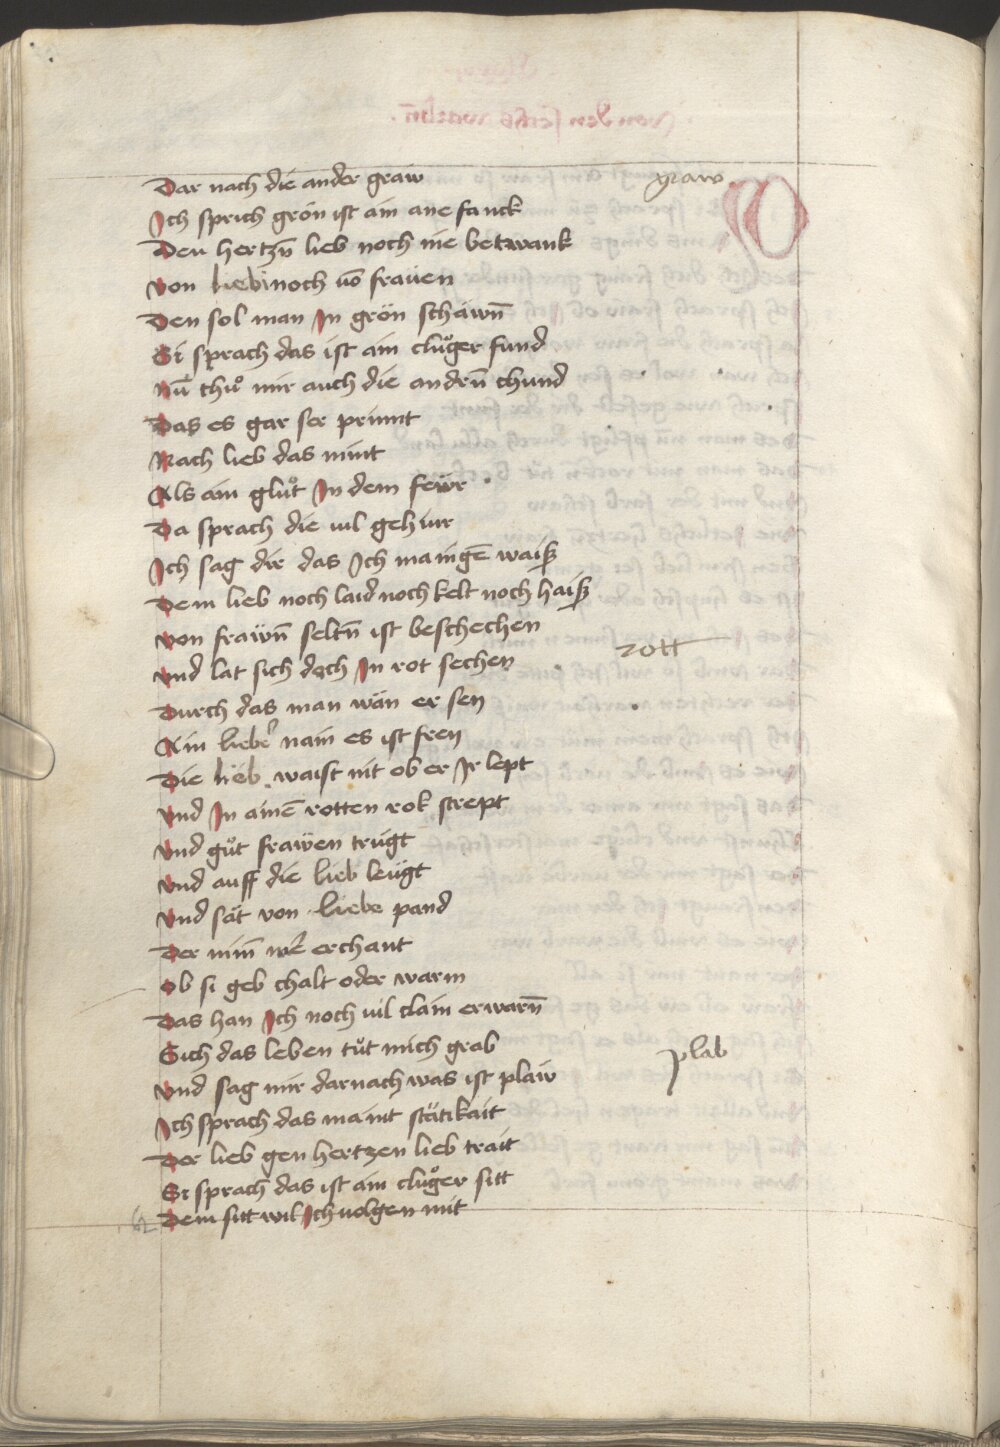 Dar nach die ander graw
graw
Ich sprich grön ist ain ane fanck
Den hertzn̄ lieb noch nie betwank
Von lieb noch vō fraüen
Den sol man In grön schäwn̄
Si sprach das ist ain clůger fund
Nū thů mir auch die andrn̄ chund
Das es gar ser prinnt
Nach lieb das nimt
Als ain glůt In dem feẅr
Da sprach die vil gehiur
Ich sag dir das Ich maingē waiß
Dem lieb noch laid noch kelt noch haiß
Von fraẅn̄ seltn̄ ist beschechen
rott
Vnd lat sich doch In rot sechen
Durch das man wän er sey
Ain lieber nain es ist frey
Die lieb waist nit ob er Ir lept
Vnd In ainē rotten rok strept
Vnd gůt fraẅen trügt
Vnd auff die lieb leügt
Vnd sät von liebe pand
Der nim̄ wē erchant
Ob si geb chalt oder warm
Das han Ich noch vil clain erwarn̄
Sich das leben tůt mich grab
plab
Vnd sag mir darnach was ist plaw
Ich sprach das maint stätikait
Der lieb gen hertzen lieb trait
Si sprach das ist ain clůger sitt
Dem sitt wil Ich volgen mit
62